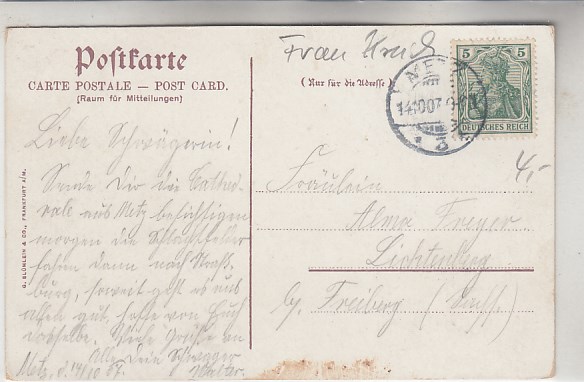 Postkarte
CARTE POSTALE — POST CARD.
(Raum für Mitteilungen)
Frau
(Nur für die Adresse)
METZ
14.10.07
3
5 5
DEUTSCHES REICH
4,-
Liebe Schwägerin!
Sende Dir die Cathed-
rale aus Metz besichtigen
morgen die Schlachtfelder
fahren dann nach Straß-
burg, soweit geht es uns
alles gut, hoffe von Euch
dasselbe. Viele Grüße an
Alle Dein Schwager
Metz, d. 14/10 07.
Fräulein
Alma Freyer
Lichtenberg
b/ Freiberg (Sachs.)
G. BLÜMLEIN & CO., FRANKFURT A/M.